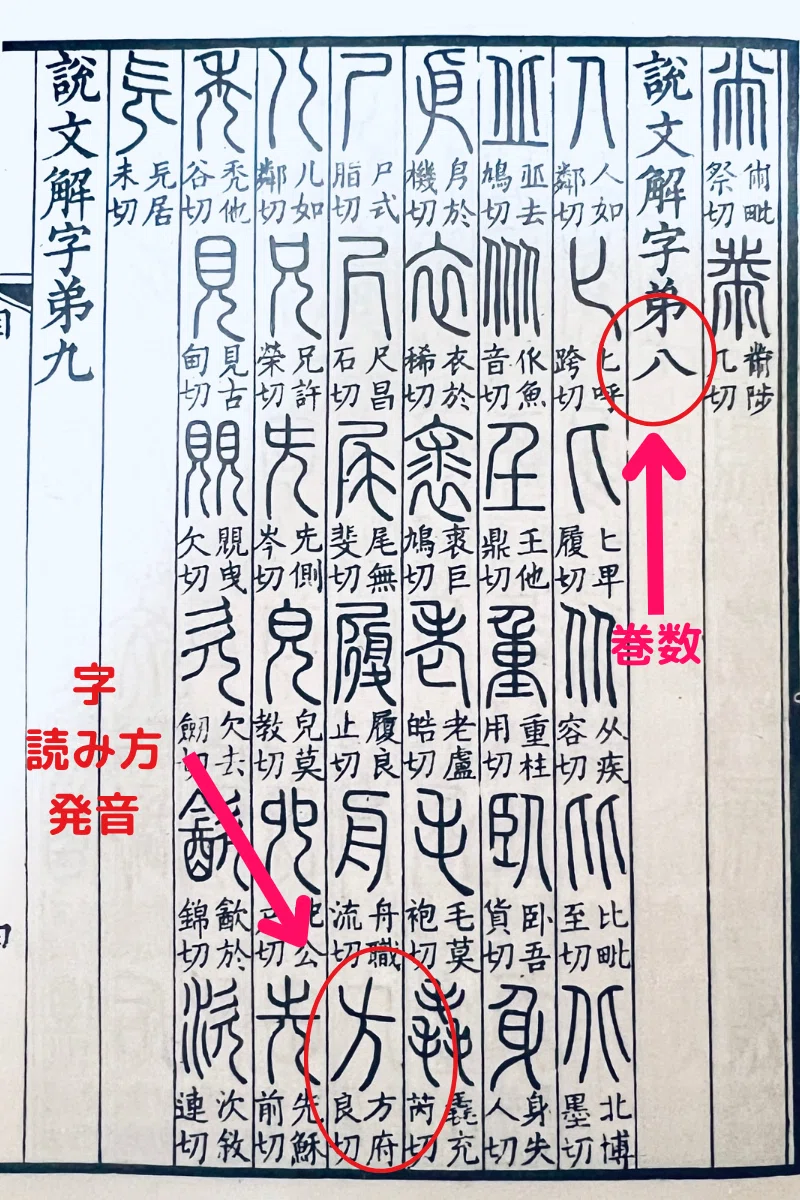 㡀 㡀毗祭切 黹 黹陟几切
說文解字弟八
人 人如鄰切 匕 匕呼跨切 匕 匕卑履切 从 从疾容切 比 比毗至切 北 北博墨切
丠 丠去鳩切 㐺 㐺魚音切 𡈼 𡈼他鼎切 重 重柱用切 臥 卧吾貨切 身 身失人切
㐆 㐆於機切 衣 衣於稀切 裘 裘巨鳩切 老 老盧皓切 毛 毛莫袍切 毳 毳充芮切
尸 尸式脂切 尺 尺昌石切 尾 尾無斐切 履 履良止切 舟 舟職流切 方 方府良切
儿 儿如鄰切 兄 兄許榮切 兂 兂側岑切 皃 皃莫教切 公 切 先 先穌前切
禿 禿他谷切 見 見古甸切 覞 覞曳欠切 欠 欠去劒切 㱃 㱃於錦切 㳄 㳄敘連切
旡 旡居未切
說文解字弟九
巻数
字
読み方
発音